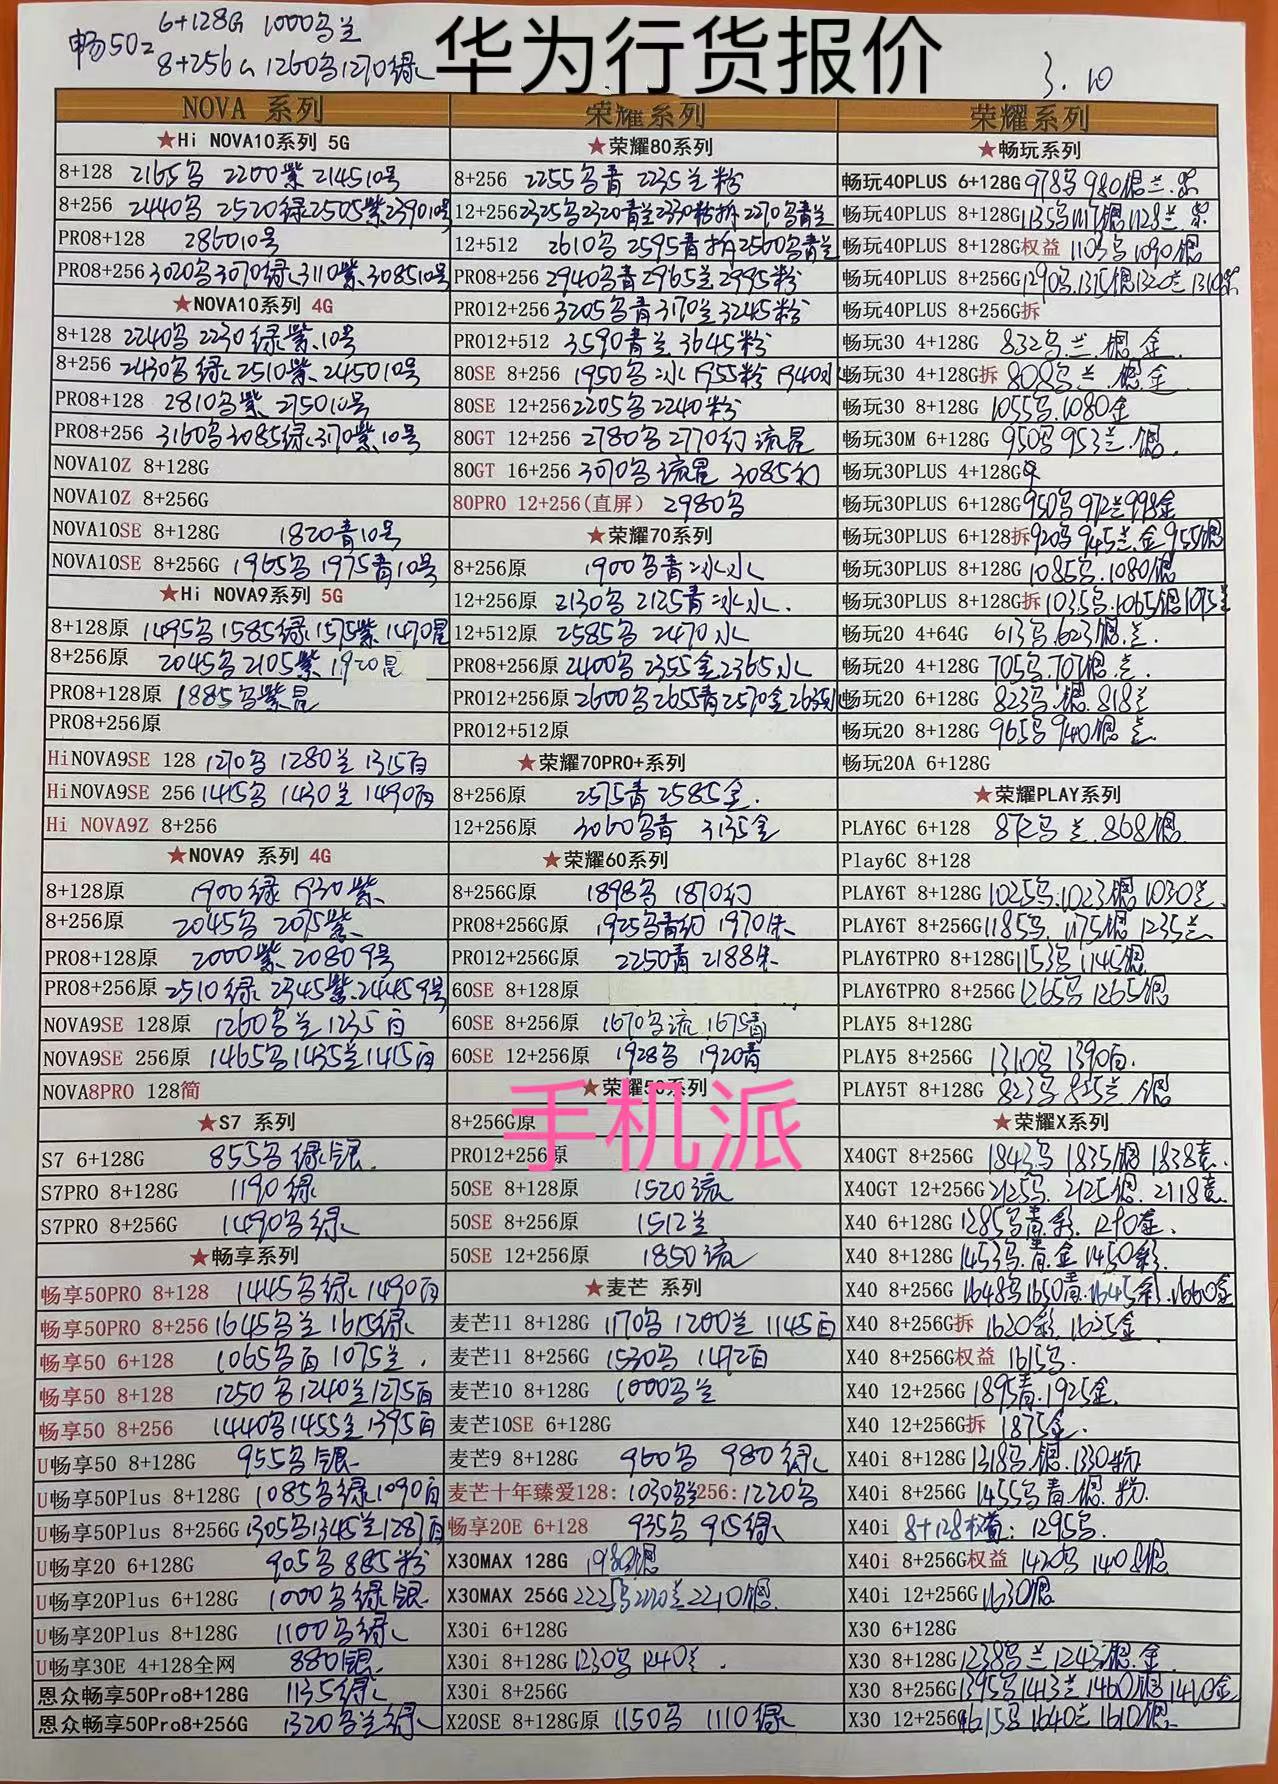 华为行货报价
3.10
畅50= 6+128G 1000乌兰
8+256G 1260乌1270绿
NOVA 系列
★Hi NOVA10系列 5G
8+128 2165乌 2200紫 214510号
8+256 2440乌 2520绿2505紫239010号
PRO8+128 286010号
PRO8+256 3020乌3070绿3110紫308510号
★NOVA10系列 4G
8+128 2240乌2230绿紫.10号
8+256 2430乌绿2510紫245010号
PRO8+128 2810乌紫275010号
PRO8+256 3160乌3085绿3170紫10号
NOVA10Z 8+128G
NOVA10Z 8+256G
NOVA10SE 8+128G 1820青10号
NOVA10SE 8+256G 1965乌1975青10号
★Hi NOVA9系列 5G
8+128原 1495乌1585绿1575紫1470昆
8+256原 2045乌2105紫1920昆
PRO8+128原 1885乌紫昆
PRO8+256原
HiNOVA9SE 128 1270乌 1280兰 1315白
HiNOVA9SE 256 1415乌1430兰1490白
Hi NOVA9Z 8+256
★NOVA9 系列 4G
8+128原 1900绿 1930紫
8+256原 2045乌 2075紫
PRO8+128原 2000紫20809号
PRO8+256原 2510绿2345紫24459号
NOVA9SE 128原 1260乌兰1235白
NOVA9SE 256原 1465乌1435兰1415白
NOVA8PRO 128简
★S7 系列
S7 6+128G 855乌绿银
S7PRO 8+128G 1190绿
S7PRO 8+256G 1490乌绿
★畅享系列
畅享50PRO 8+128 1445乌绿1490白
畅享50PRO 8+256 1645乌兰1615绿
畅享50 6+128 1065乌白1075兰.
畅享50 8+128 1250乌1240兰1275白
畅享50 8+256 1440乌1455兰1395白
U畅享50 8+128G 955乌银
U畅享50Plus 8+128G 1085乌绿1090白
U畅享50Plus 8+256G 1305乌1345兰1287白
U畅享20 6+128G 905乌885粉
U畅享20Plus 6+128G 1000乌绿银
U畅享20Plus 8+128G 1100乌绿
U畅享30E 4+128全网 880银
恩众畅享50Pro8+128G 1135绿
恩众畅享50Pro8+256G 1320乌兰绿
荣耀系列
★荣耀80系列
8+256 2255乌青 2235兰粉
12+256 2325乌2320青兰2330粉拆2270乌青兰
12+512 2610乌2595青拆2560乌青兰
PRO8+256 2940乌青2965兰2995粉
PRO12+256 3205乌青3170兰3245粉
PRO12+512 3590青兰3645粉
80SE 8+256 1950乌冰1955粉1940水
80SE 12+256 2205乌2240粉
80GT 12+256 2780乌2770幻流星
80GT 16+256 3070乌流星 3085幻
80PRO 12+256(直屏) 2980乌
★荣耀70系列
8+256原 1900乌青冰水
12+256原 2130乌2125青冰水.
12+512原 2585乌2470水
PRO8+256原 2400乌2355金2365水
PRO12+256原 2600乌2655青2570金2635水
PRO12+512原
★荣耀70PRO+系列
8+256原 2575青2585金.
12+256原 3060乌青 3135金
★荣耀60系列
8+256G原 1898乌 1870幻
PRO8+256G原 1925乌青幻 1970朱
PRO12+256G原 2250青2188朱
60SE 8+128原
60SE 8+256原 1670乌流1675青
60SE 12+256原 1928乌 1920青
★荣耀50系列
手机派
8+256G原
PRO12+256原
50SE 8+128原 1520流
50SE 8+256原 1512兰
50SE 12+256原 1850流
★麦芒 系列
麦芒11 8+128G 1170乌1200兰1145白
麦芒11 8+256G 1530乌 1472白
麦芒10 8+128G 1000乌兰
麦芒10SE 6+128G
麦芒9 8+128G 960乌 980绿
麦芒十年臻爱128: 1030乌兰256:1220乌
畅享20E 6+128 935乌915绿
X30MAX 128G 1980银
X30MAX 256G 2225乌2220兰2210银
X30i 6+128G
X30i 8+128G 1230乌1240兰.
X30i 8+256G
X20SE 8+128G原 1150乌 1110绿
荣耀系列
★畅玩系列
畅玩40PLUS 6+128G 978乌980银兰.紫
畅玩40PLUS 8+128G 1135乌1117银1128兰.紫
畅玩40PLUS 8+128G权益 1103乌1090银
畅玩40PLUS 8+256G 1290乌1315银1320兰1310紫
畅玩40PLUS 8+256G拆
畅玩30 4+128G 832乌.兰.银.金.
畅玩30 4+128G拆 808乌兰.银金
畅玩30 8+128G 1055乌.1080金
畅玩30M 6+128G 950乌953兰.银
畅玩30PLUS 4+128G
畅玩30PLUS 6+128G 950乌972兰998金
畅玩30PLUS 6+128拆 920乌945兰.金955银
畅玩30PLUS 8+128G 1085乌.1080银
畅玩30PLUS 8+128G拆 1035乌.1065银1075兰
畅玩20 4+64G 613乌.623银.兰.
畅玩20 4+128G 705乌.707银.兰.
畅玩20 6+128G 823乌.银.818兰
畅玩20 8+128G 965乌940银兰
畅玩20A 6+128G
★荣耀PLAY系列
PLAY6C 6+128 872乌兰.868银
Play6C 8+128
PLAY6T 8+128G 1025乌.1023银1030兰.
PLAY6T 8+256G 1185乌.1175银1235兰.
PLAY6TPRO 8+128G 1153乌1145银
PLAY6TPRO 8+256G 1265乌1265银
PLAY5 8+128G
PLAY5 8+256G 1310乌1390白.
PLAY5T 8+128G 823乌825兰.银
★荣耀X系列
X40GT 8+256G 1843乌1835银1838竞.
X40GT 12+256G 2125乌.2125银.2118竞.
X40 6+128G 1285乌青.彩.1290金.
X40 8+128G 1453乌.青.金1450彩.
X40 8+256G 1648乌1650青.1645彩.1660金
X40 8+256G拆 1620彩.1625金
X40 8+256G权益 1615乌.
X40 12+256G 1895青.1925金.
X40 12+256G拆 1875金.
X40i 8+128G 1318乌.银.1330粉
X40i 8+256G 1455乌青.银.粉.
X40i 8+128权益: 1295乌.
X40i 8+256G权益 1420乌1408银
X40i 12+256G 1630银
X30 6+128G
X30 8+128G 1238乌兰1243银.金
X30 8+256G 1395乌1413兰1460银1410金
X30 12+256G 1615乌1640兰1610银